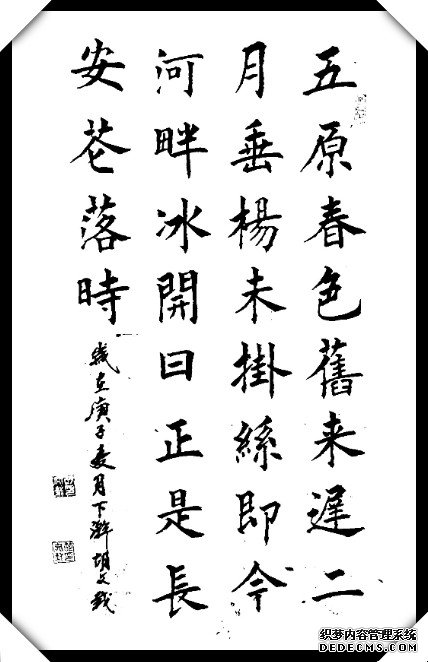 五原春色舊来遲二
月垂楊未掛絲即今
河畔冰開日正是長
安花落時
歲在庚子夏月下澣胡文
织梦内容管理系统
DEDECMS.COM